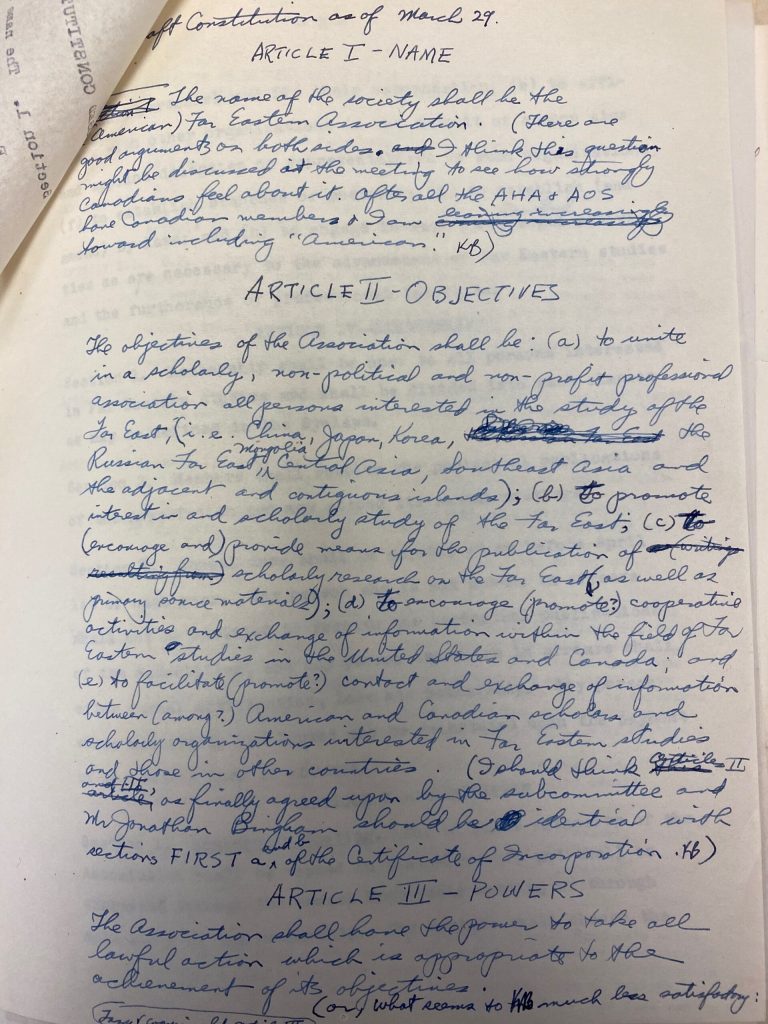 aft Constitution as of March 29.
ARTICLE I - NAME
The name of the society shall be the
(American) Far Eastern Association. (There are
good arguments on both sides. and I think this question
might be discussed at the meeting to see how strongly
Canadians feel about it. After all the AHA & AOS
have Canadian members & I am leaning increasingly
toward including "American." KB)
ARTICLE II - OBJECTIVES
The objectives of the Association shall be: (a) to unite
in a scholarly, non-political and non-profit professional
association all persons interested in the study of the
Far East, (i.e. China, Japan, Korea, the
Mongolia
Russian Far East, Central Asia, Southeast Asia and
the adjacent and contiguous islands); (b) to promote
interest in and scholarly study of the Far East; (c) to
(encourage and) provide means for the publication of (writings
resulting from) scholarly research on the Far East (, as well as
primary source materials); (d) to encourage (promote?) cooperative
activities and exchange of information within the field of Far
Eastern studies in the United States and Canada; and
(e) to facilitate (promote?) contact and exchange of information
between (among?) American and Canadian scholars and
scholarly organizations interested in Far Eastern studies
and those in other countries. (I should think articles II
and III,
article, as finally agreed upon by the subcommittee and
Mr Jonathan Bingham should be identical with
and b
sections FIRST a, of the Certificate of Incorporation. KB)
ARTICLE III - POWERS
The Association shall have the power to take all
lawful action which is appropriate to the
achievement of its objectives.
(or, what seems to KB much less satisfactory:
CONSTITUT
Section I. The name